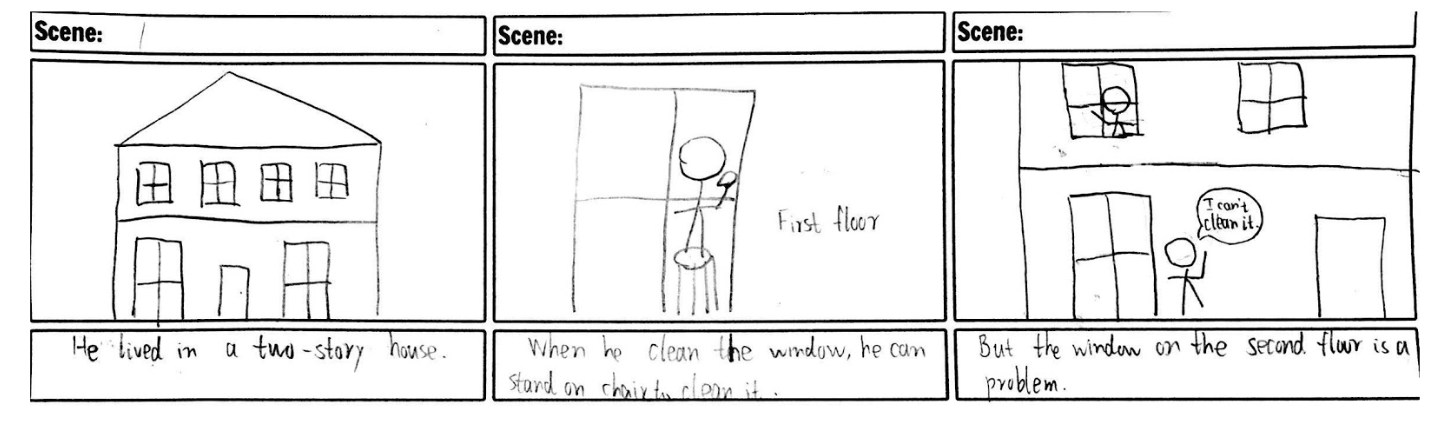 Scene:
He lived in a two-story house.
Scene:
First floor
When he clean the window, he can
stand on chair to clean it.
Scene:
I can't
clean it.
But the window on the second floor is a
problem.